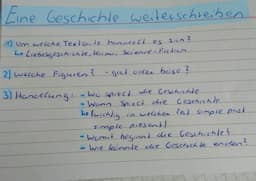 Eine Geschichte weiterschreiben
1) Um welche Textsorte handelt es sich?
↳ Liebesgeschichte, Krimi, Science-Fiction
2) Welche Figuren? - gut oder böse?
3) Handlung: - Wo spielt die Geschichte
- Wann spielt die Geschichte
↳ wichtig in welcher Zeit simple past
simple present
- Womit beginnt die Geschichte?
- Wie könnte die Geschichte enden?